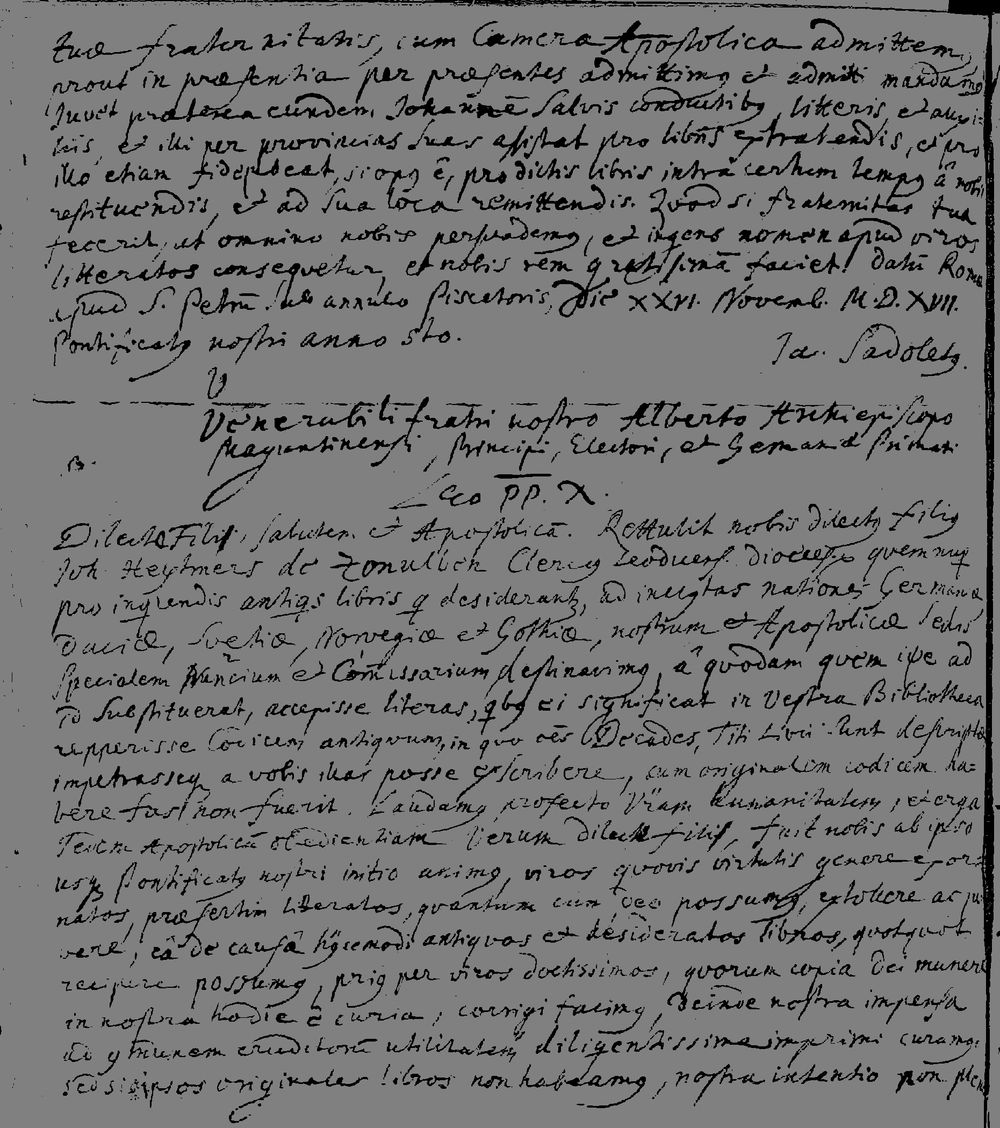 tuae fraternitatis, cum Camera Apostolica admittem,
prout in praesentia per praesentes admittimq et admitti mandamq
Juvet praeterea eundem Johannē Salvis conductibq, litteris, et auxi-
liis, et illi per provincias suas assistat pro libris extrahendis, et pro
illo etiam fidejubeat, si opq ē, pro dictis libris intra certum tempq â nobis
restituendis, et ad sua loca remittendis. Quod si fraternitas tua
fecerit, ut omnino nobis persuademq, et ingens nomen apud viros
litteratos consequetur, et nobis rem gratissimā faciet. Datū Romae
apud S. Petrū sub annulo Piscatoris, Die XXVI. Novemb. M.D.XVII.
Pontificatq nostri anno 5to.
Ja. Sadoletq.
V
Venerabili fratri nostro Alberto Archiepiscopo
Maguntinensi, Principi, Electori, et Germaniae Primati
B.
Leo PP. X.
Dilecte Filij, Salutem et Apostolicā. Rettulit nobis dilectq filiq
Joh. Heytmers de Zonulben Clericq Leodiens dioceseos quem nup
pro inqrendis antiqs libris q desiderantr, ad inclytas nationes Germaniae
Daciae, Svetiae, Norvegiae et Gothiae, nostrum et Apostolicae Sedis
specialem Nuncium et Com̄issarium destinavimq, a quodam quem ipse ad
id substituerat, accepisse literas, qbq ei significat in Vestra Bibliotheca
repperisse Codicem antiquum, in quo oēs Decades, Titi Livii sunt descriptae
impetrasseq a vobis illas posse exscribere, cum originalem codicem ha=
bere fas non fuerit. Laudamq profecto Vr̄am humanitatem, et erga
Sedem Apostolicā obedientiam. Verum dilecti filij, fuit nobis ab ipso
usq Pontificatq nostri initio animq, viros quovis virtutis genere exor=
natos, praesertim literatos, quantum cum Deo possumq, extollere ac ju
vare, eâ de causâ hqscemodi antiquos et desideratos libros, quotquot
recipere possumq, priq per viros doctissimos, quorum copia Dei munere
in nostra hodie ē curia, corrigi facimq, Deinde nostra impensa
ad cōmunem eruditorū utilitatem diligentissime imprimi curamq.
Sed si ipsos originales libros non habeamq, nostra intentio non plene